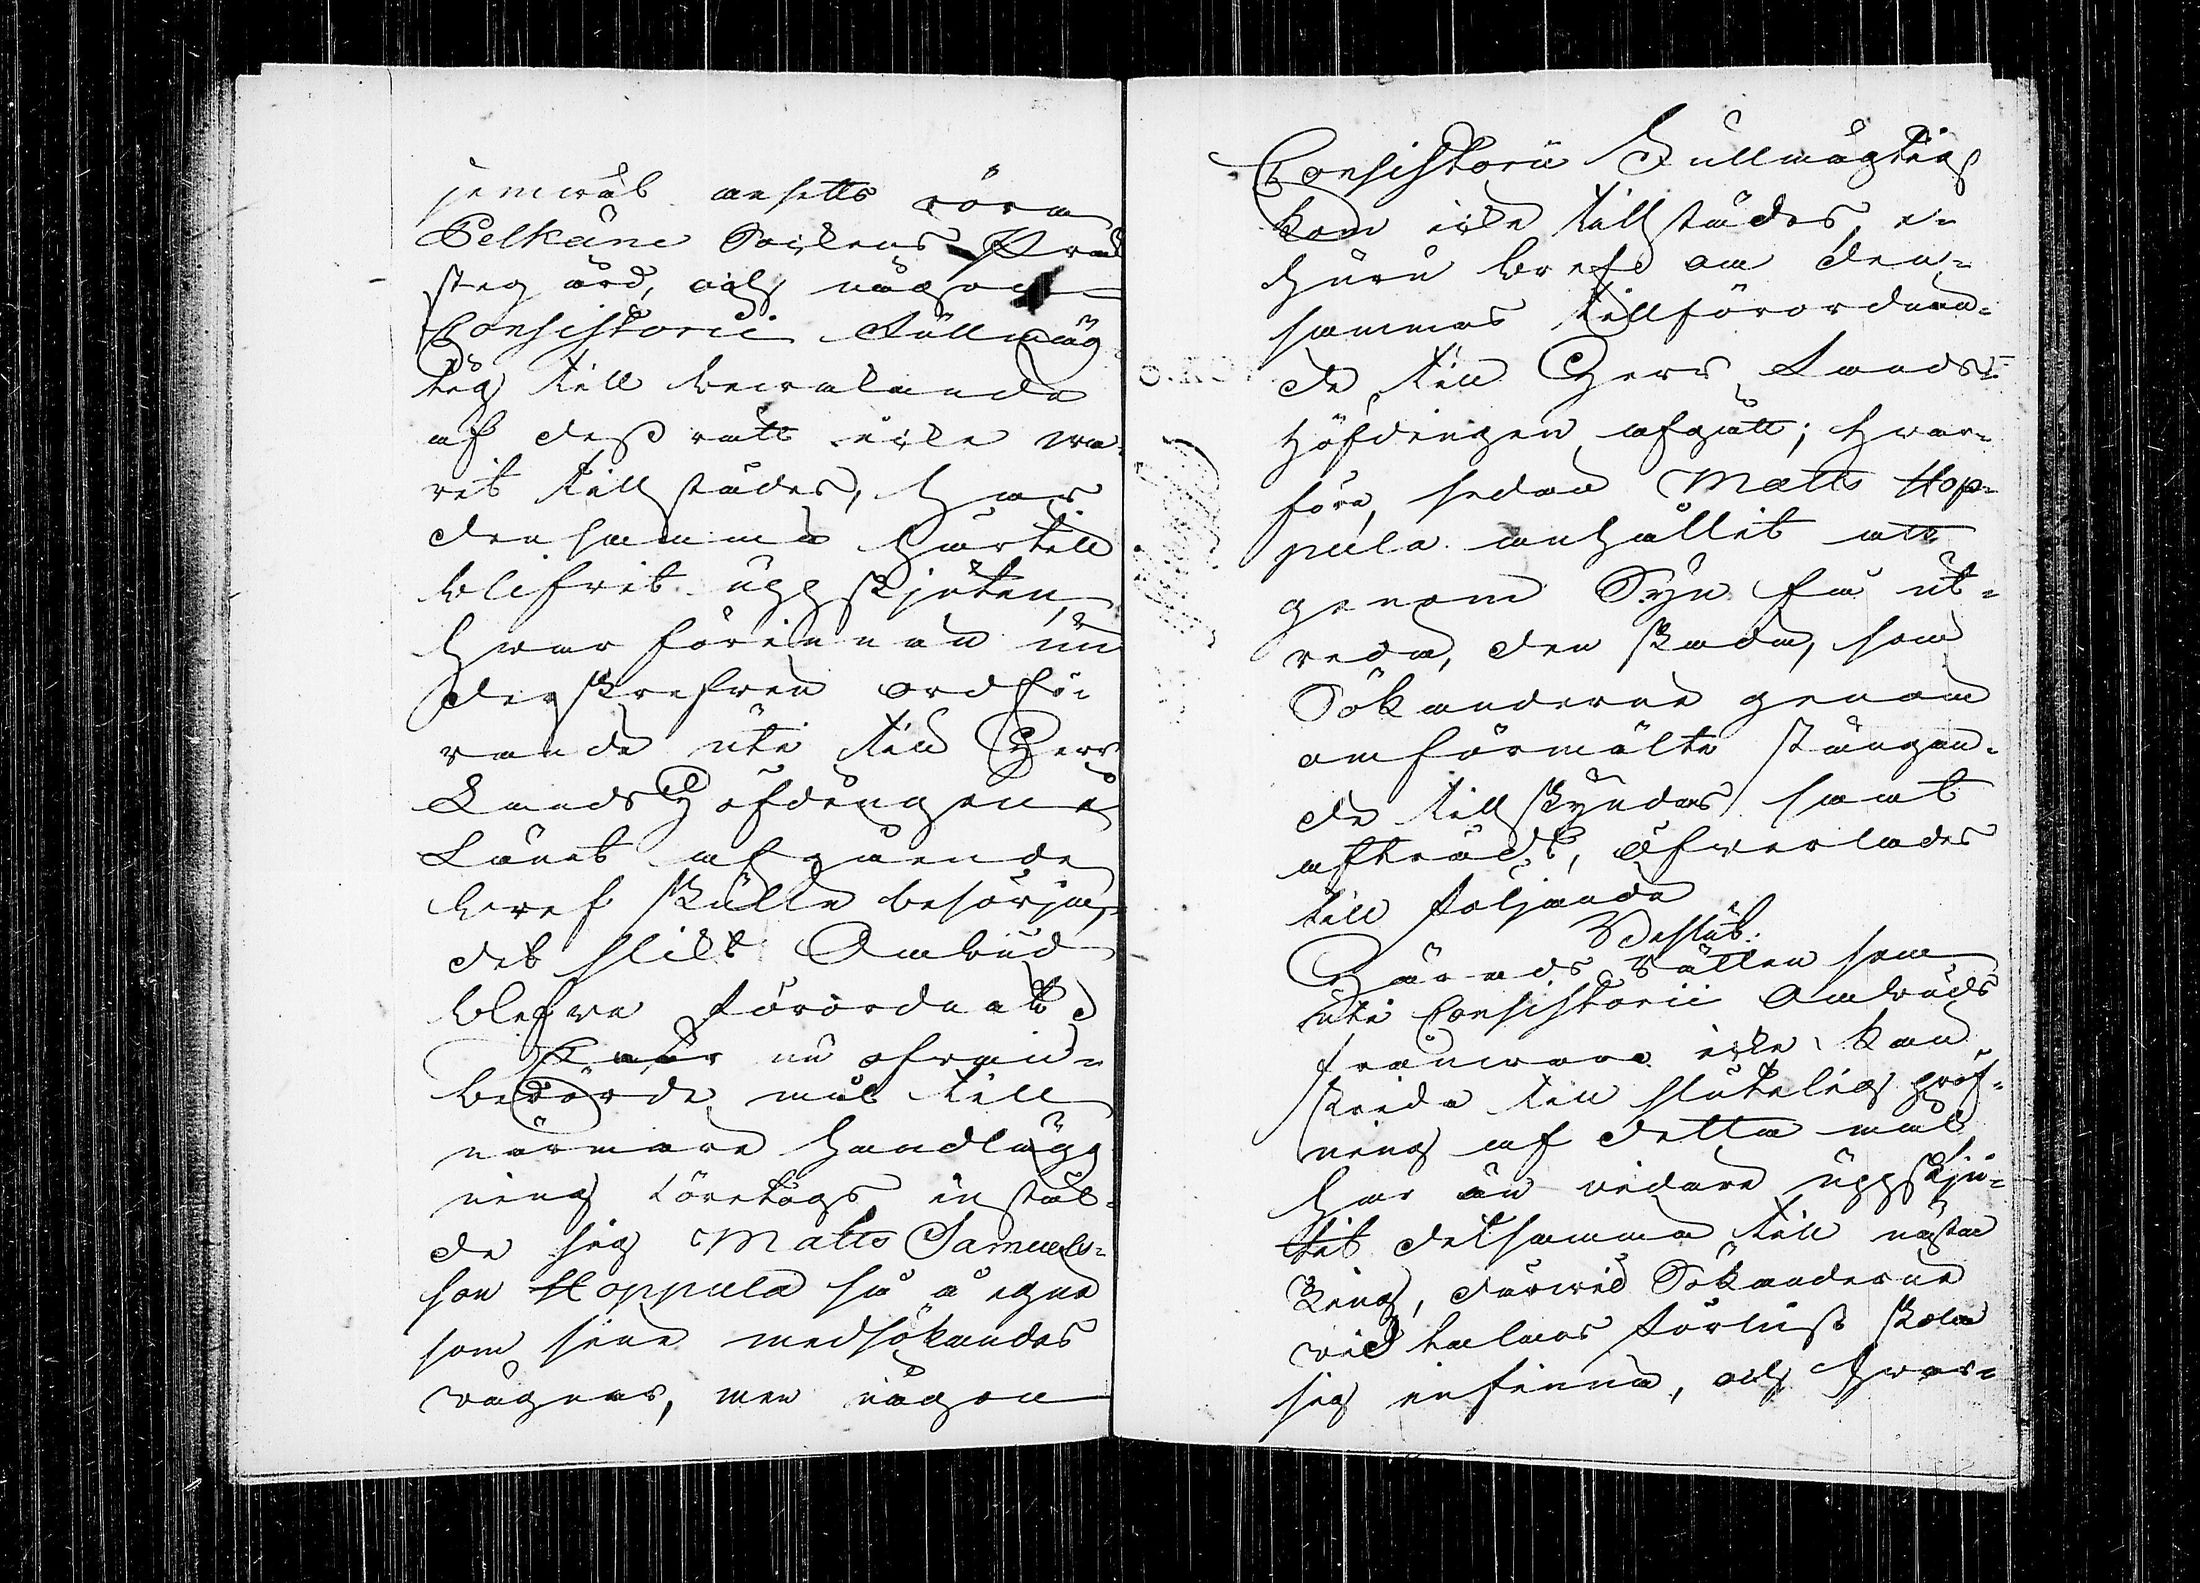 jemwäl ansetts röra
Pelkäne Sockens Prä
stegård, och någon
Consistorii Fullmäg
tig till bewakande
af dess rätt icke wa-
rit tillstädes, har
densamma härtill
blifwit uppskjuten,
hwarförinnan un
derskrefwen ordfö-
rande uti till Herr
LandsHöfdingen i
Länet afgående
bref skulle besörja,
det slikt Ombud
blefwe förordnadt,
När nu ofwan-
berörde mål till
närmare handlägg
ning företogs instäl-
de sig Matts Samuels-
son Hoppula så å egna
som sine medsökandes
wägnar, men någon
Consistorii Fullmägtig
kom icke tillstädes, e-
huru bref om den-
sammas tillförordnan-
de till Herr Lands-
Höfdingen afgått; hwar-
före, sedan Matts Hop-
pula anhållit att
genom Syn få ut-
reda, den skada, som
Sökanderne genom
omförmälte stängan-
de tillskyndas samt
afträdt, öfwerlades
till följande
Beslut:
Härads Rätten som
uti Consistorii Ombuds
frånwaro icke kan
skrida till slutelig pröf-
ning af detta mål
har än vidare uppskju-
tit detsamma till nästa
Ting, därwid Sökanderne
wid talans förlust skola
sig infinna, och hwar-